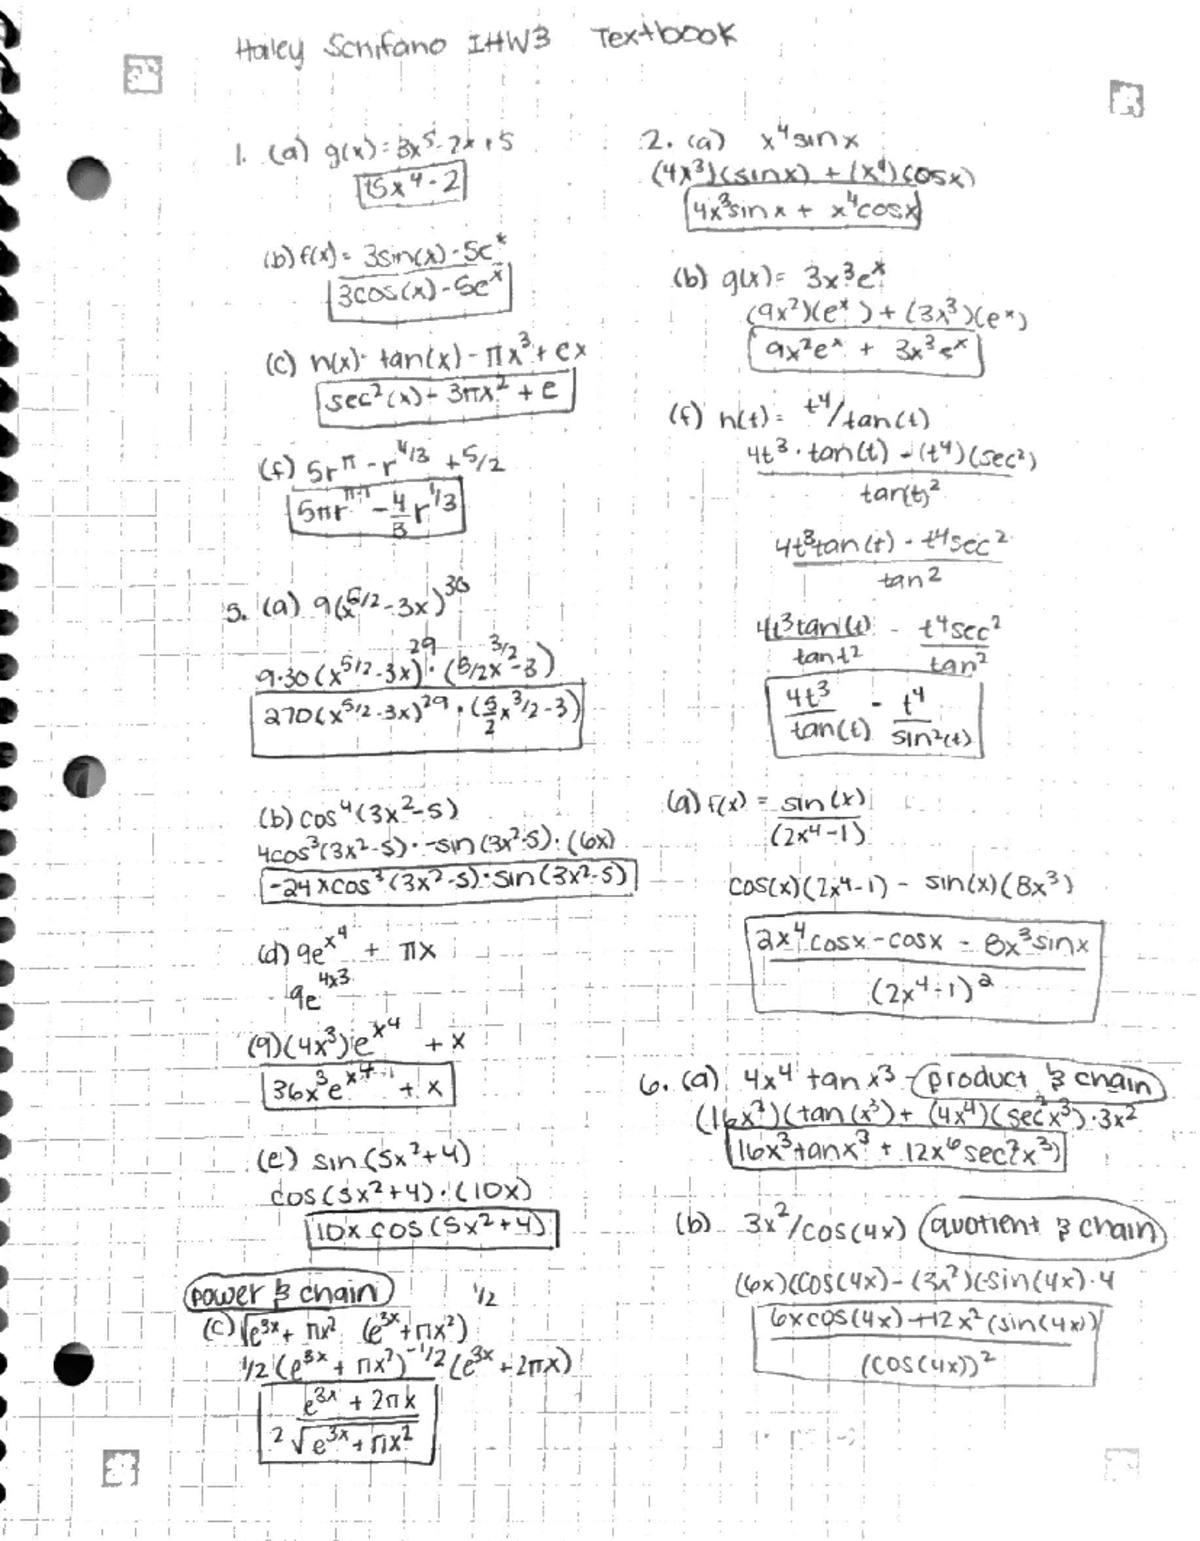 Haley Schifano IHW3 Textbook
1. (a) g(x) = 3x⁵ - 2x + 5
15x⁴ - 2
(b) f(x) = 3sin(x) - 5e^x
3cos(x) - 5e^x
(c) h(x) = tan(x) - πx³ + ex
sec²(x) - 3πx² + e
(f) 5r^π - r^4/3 + 5/2
5πr^π-1 - 4/3 r^1/3
5. (a) 9(x^5/2 - 3x)^30
9·30(x^5/2 - 3x)^29 · (5/2x^3/2 - 3)
270(x^5/2 - 3x)^29 · (5/2 x^3/2 - 3)
(b) cos⁴(3x² - 5)
4cos³(3x² - 5) · -sin(3x² - 5) · (6x)
-24xcos³(3x² - 5) · sin(3x² - 5)
(d) 9e^x⁴ + πx
9e^4x3
(9)(4x³)e^x⁴ + x
36x³e^x⁴ + x
(e) sin(5x² + 4)
cos(5x² + 4) · (10x)
10x cos(5x² + 4)
power & chain
(c) √e^3x + πx² (e^3x + πx²)^1/2
1/2(e^3x + πx²)^-1/2 (e^3x + 2πx)
e^3x + 2πx
2√e^3x + πx²
2. (a) x⁴sinx
(4x³)(sinx) + (x⁴)cosx)
4x³sinx + x⁴cosx
(b) g(x) = 3x³e^x
(9x²)(e^x) + (3x³)(e^x)
9x²e^x + 3x³e^x
(f) h(t) = t⁴/tan(t)
4t³ · tan(t) - (t⁴)(sec²)
tan(t)²
4t³tan(t) - t⁴sec²
tan²
4t³tan(t) - t⁴sec²
tant² tan²
4t³ - t⁴
tan(t) sin²(t)
(a) f(x) = sin(x)
(2x⁴ - 1)
cos(x)(2x⁴ - 1) - sin(x)(8x³)
2x⁴cosx - cosx - 8x³sinx
(2x⁴ - 1)²
6. (a) 4x⁴ tanx³ - product & chain
(16x³)(tan(x³) + (4x⁴)(sec²x³) · 3x²
16x³tanx³ + 12x⁶sec²x³)
(b) 3x²/cos(4x) quotient & chain
(6x)(cos(4x) - (3x²)(-sin(4x) · 4
6xcos(4x) + 12x²(sin(4x))
(cos(4x))²